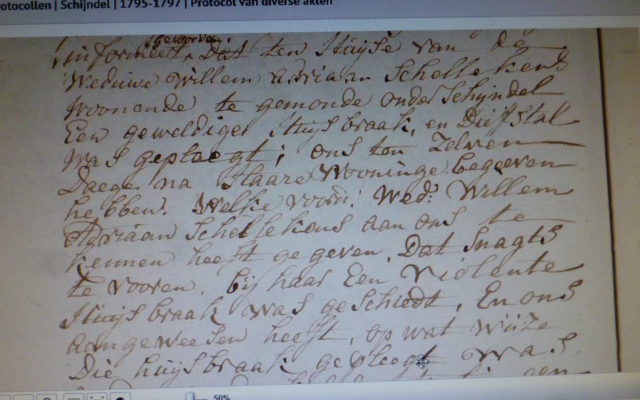 otocollen | Schijndel | 1795-1797 | Protocol van diverse akten
geworden
informeert, Dat ten Huijse van de
Weduwe Willem adriaan Schellekens
woonende te gemonde onder Schijndel
Een geweldige Huijsbraak, en Diefstal
was gepleegt; ons ten Zelven
Daege na Haare Wooninge begeeven
hebben. Welke voorn: Wed: Willem
Adriaan Schellekens aan ons te
kennen heeft gegeven. Dat Snagts
te vooren. bij haar Een violente
Huijsbraak was geschiedt, En ons
aangeweesen heeft, op wat wijze
Die huijsbraak gepleegt was,
50%